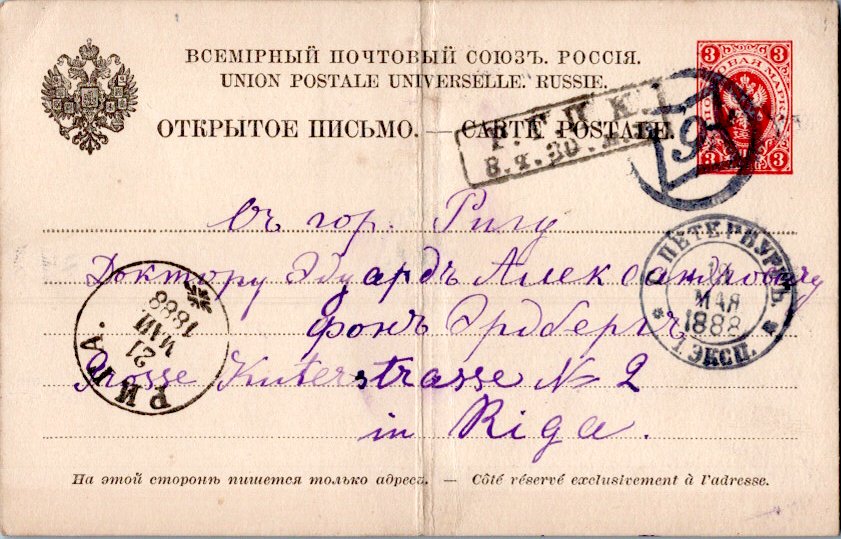 ВСЕМІРНЫЙ ПОЧТОВЫЙ СОЮЗЪ. РОССІЯ.
UNION POSTALE UNIVERSELLE. RUSSIE.
ОТКРЫТОЕ ПИСЬМО. — CARTE POSTALE.
3 3
ПОЧТОВАЯ МАРКА
3 3
8.Ч.30.М.
9
Въ гор. Ригу
Доктору Эдуардъ Александровичу
фонъ Эрдбергъ
GrosseKüterstrasse № 2
in Riga.
С. ПЕТЕРБУРГЪ.
МАЯ
1888
1 ЭКСП.
РИГА.
21
МАЙ
1888
На этой сторонѣ пишется только адресъ. — Côté réservé exclusivement à l'adresse.